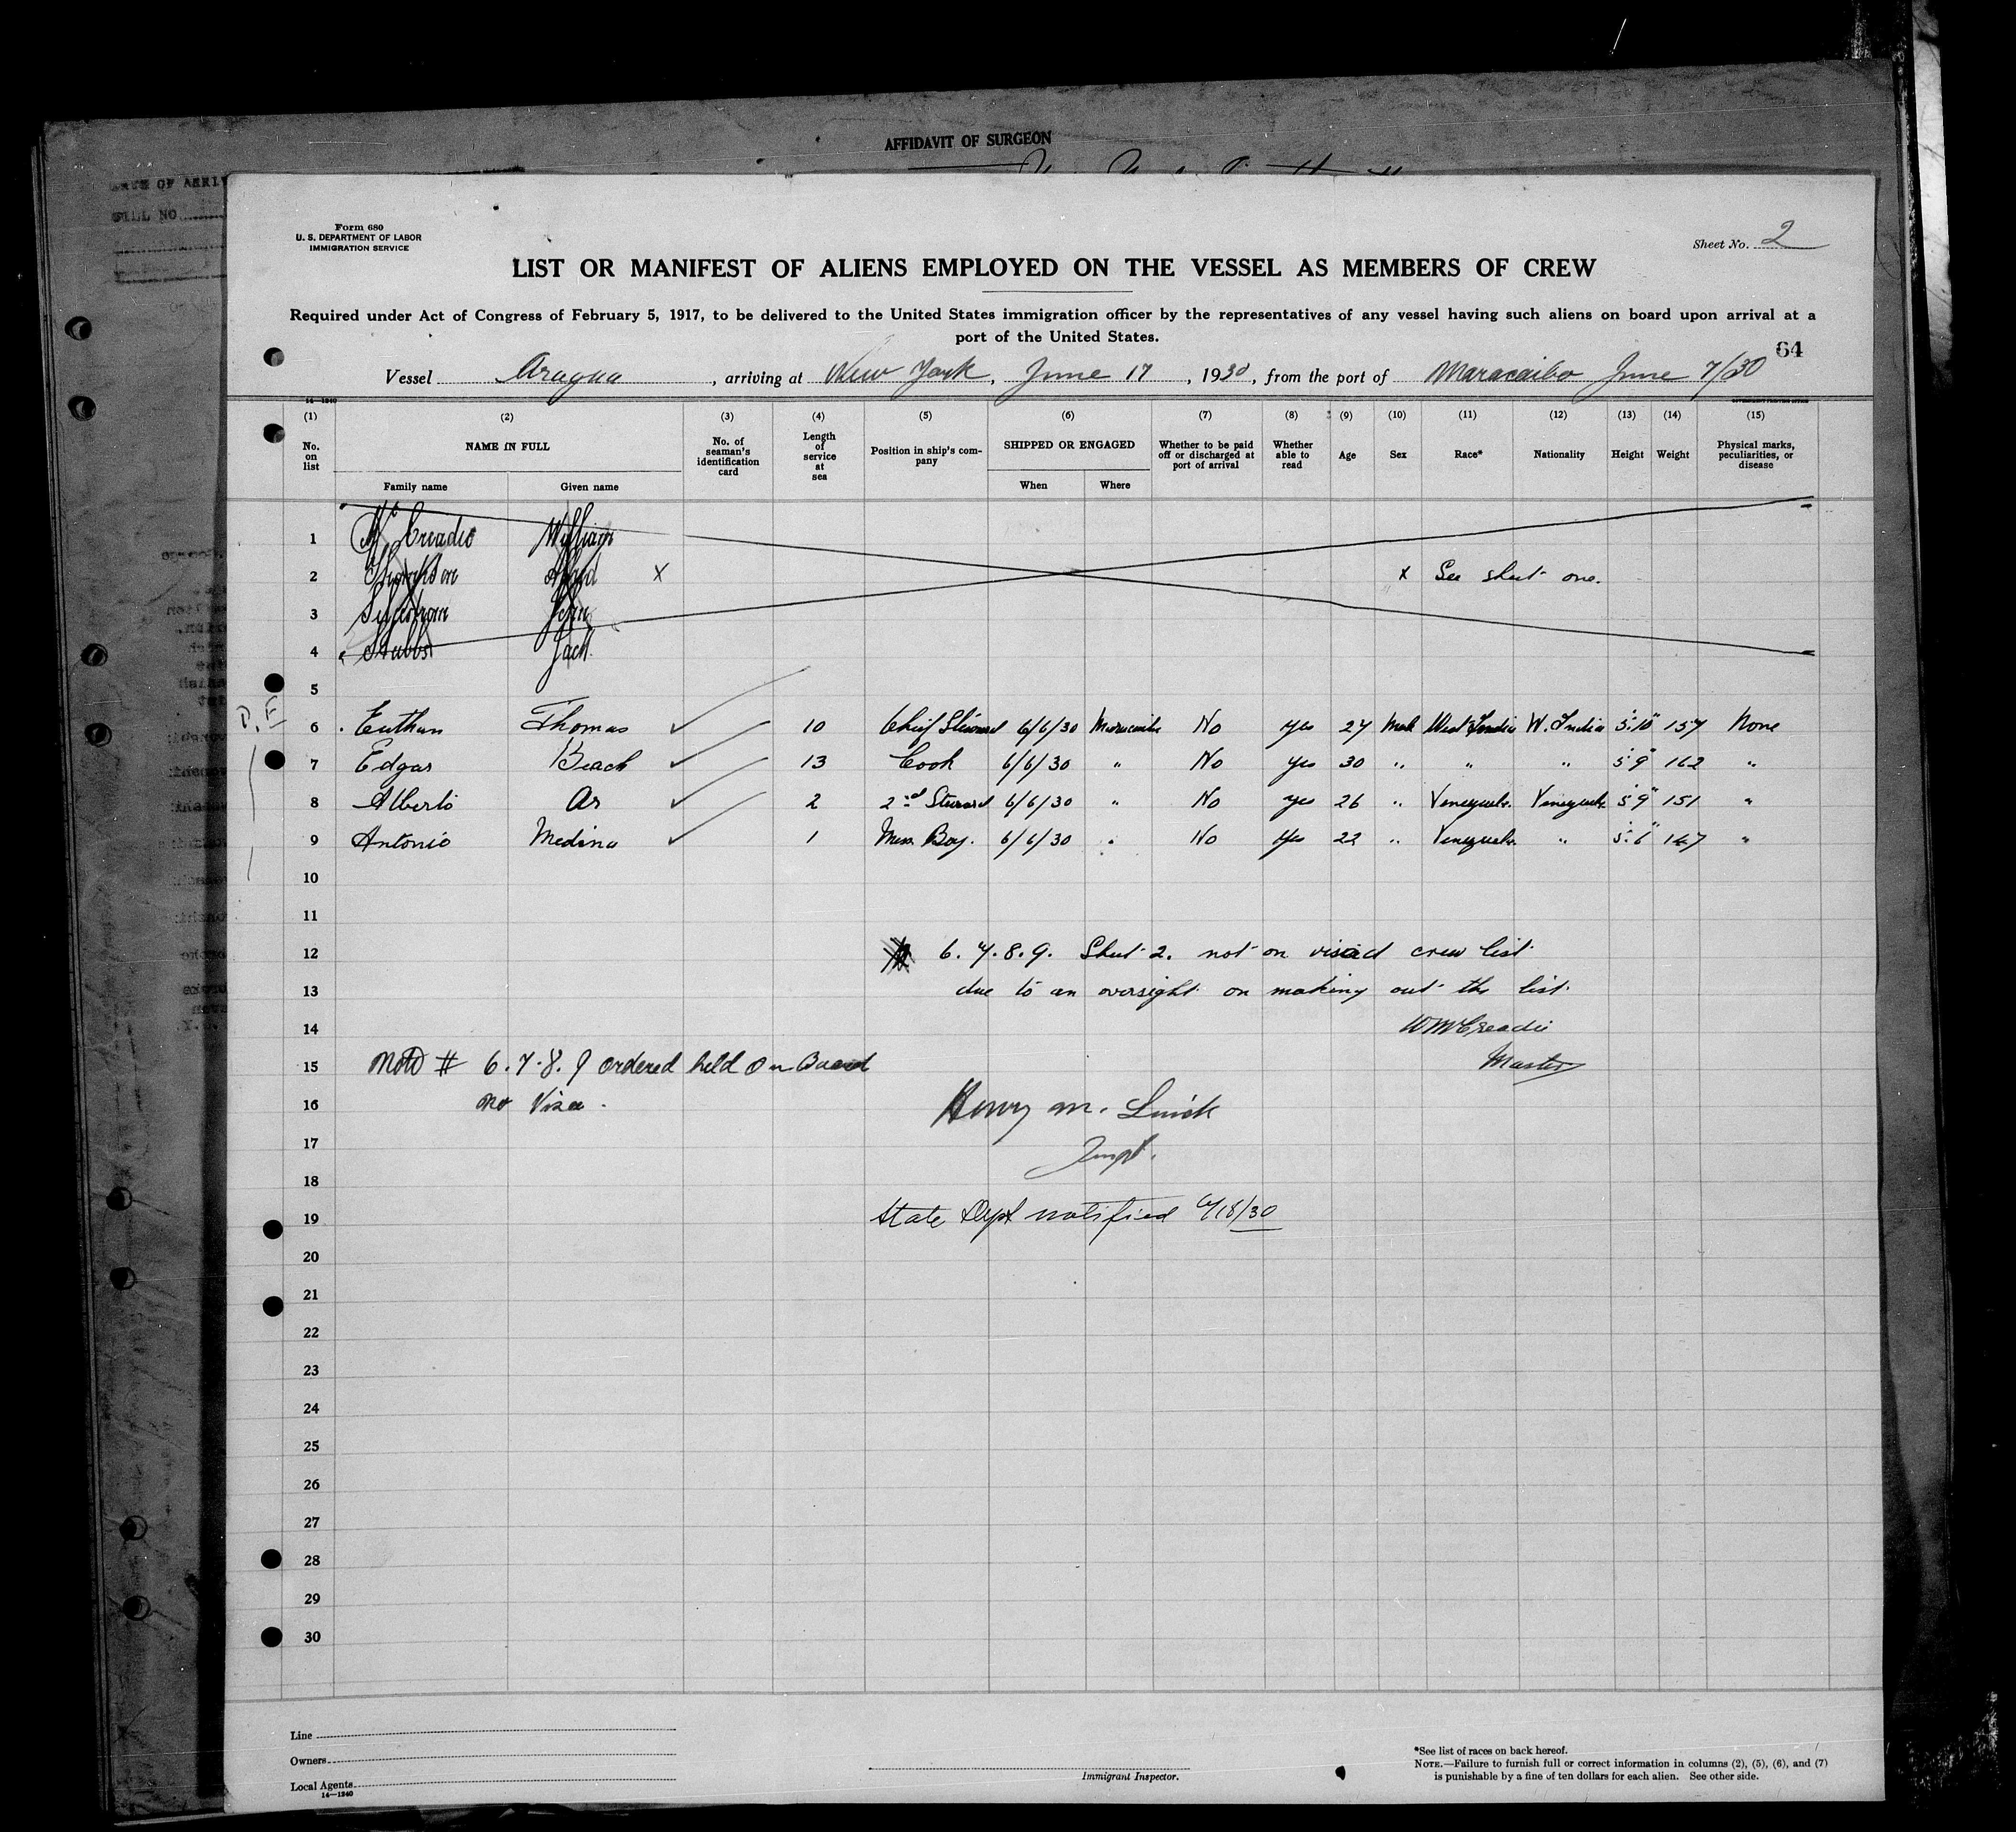 AFFIDAVIT OF SURGEON
BILL NO
Form 680
U. S. DEPARTMENT OF LABOR
IMMIGRATION SERVICE
Sheet No. 2
LIST OR MANIFEST OF ALIENS EMPLOYED ON THE VESSEL AS MEMBERS OF CREW
Required under Act of Congress of February 5, 1917, to be delivered to the United States immigration officer by the representatives of any vessel having such aliens on board upon arrival at a
port of the United States.
64
Vessel Aragua, arriving at New York, June 17, 1930, from the port of Maracaibo June 7/30
14—1240
(1) (2) (3) (4) (5) (6) (7) (8) (9) (10) (11) (12) (13) (14) (15)
No. on list NAME IN FULL Family name Given name No. of seaman's identification card Length of service at sea Position in ship's company SHIPPED OR ENGAGED When Where Whether to be paid off or discharged at port of arrival Whether able to read Age Sex Race* Nationality Height Weight Physical marks, peculiarities, or disease
1 McCreadie William
2 X X See sheet one.
3 John
4 Stubbs Jack
5
D.F
6 Euthan Thomas 10 Chief Steward 6/6/30 Maracaibo No yes 27 Male West India W. India 5'.10" 157 None
7 Edgar Beach 13 Cook 6/6/30 " No yes 30 " " " 5'9" 162 "
8 Alberto Ar 2 2nd Steward 6/6/30 " No yes 26 " Venezuela. Venezuela. 5'9" 151 "
9 Antonio Medina 1 Mess Boy. 6/6/30 " No yes 22 " Venezuela. " 5'.6" 147 "
10
11
12 6. 7. 8. 9. Sheet 2. not on visaed crew list
13 due to an oversight on making out the list.
14 W McCreadie
15 Note # 6. 7. 8. 9 ordered held on Board Master
16 no Visa. Henry M.
17 Insp.
18
19 State Dept notified 6/18/30
20
21
22
23
24
25
26
27
28
29
30
Line
Owners
Local Agents
14—1240
Immigrant Inspector.
*See list of races on back hereof.
NOTE.—Failure to furnish full or correct information in columns (2), (5), (6), and (7)
is punishable by a fine of ten dollars for each alien. See other side.